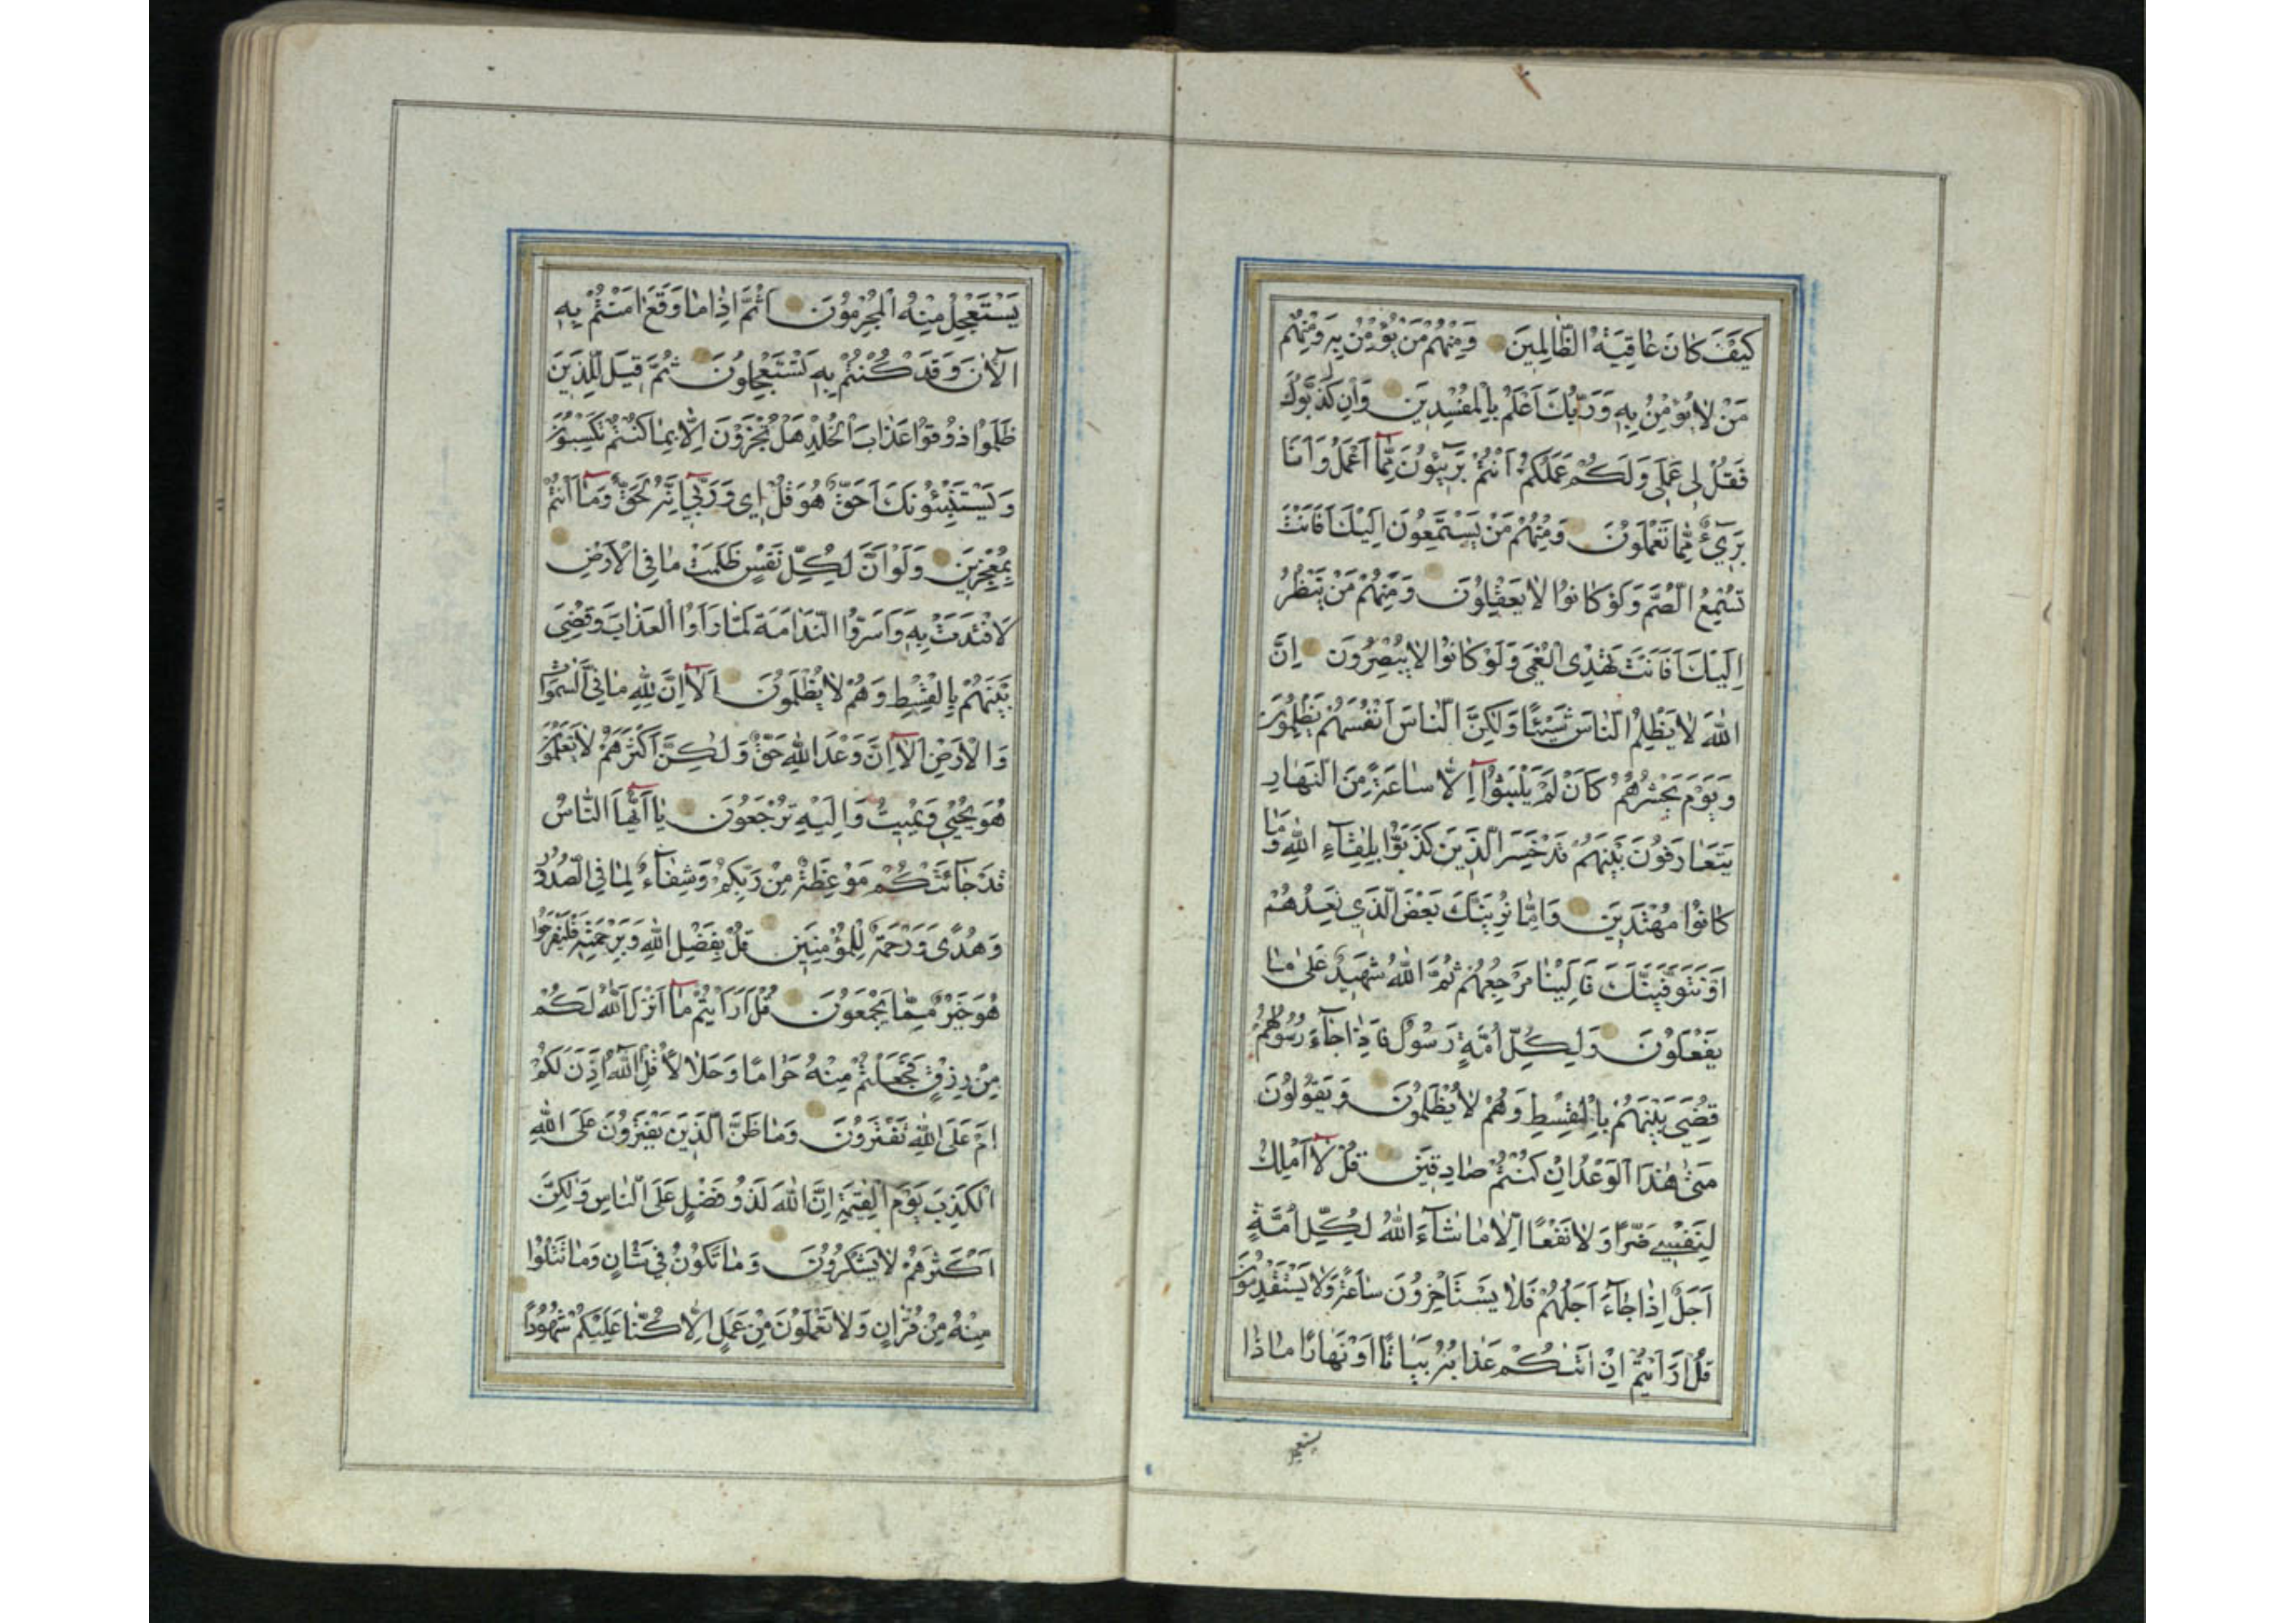 كَيْفَ كَانَ عَاقِبَةُ الظَّالِمِينَ وَمِنْهُمْ مَنْ يُؤْمِنُ بِهِ وَمِنْهُمْ
مَنْ لَا يُؤْمِنُ بِهِ وَرَبُّكَ أَعْلَمُ بِالْمُفْسِدِينَ وَإِنْ كَذَّبُوكَ
فَقُلْ لِي عَمَلِي وَلَكُمْ عَمَلُكُمْ أَنْتُمْ بَرِيئُونَ مِمَّا أَعْمَلُ وَأَنَا
بَرِيءٌ مِمَّا تَعْمَلُونَ وَمِنْهُمْ مَنْ يَسْتَمِعُونَ إِلَيْكَ أَفَأَنْتَ
تُسْمِعُ الصُّمَّ وَلَوْ كَانُوا لَا يَعْقِلُونَ وَمِنْهُمْ مَنْ يَنْظُرُ
إِلَيْكَ أَفَأَنْتَ تَهْدِي الْعُمْيَ وَلَوْ كَانُوا لَا يُبْصِرُونَ إِنَّ
اللهَ لَا يَظْلِمُ النَّاسَ شَيْئًا وَلَكِنَّ النَّاسَ أَنْفُسَهُمْ يَظْلِمُونَ
وَيَوْمَ يَحْشُرُهُمْ كَأَنْ لَمْ يَلْبَثُوا إِلَّا سَاعَةً مِنَ النَّهَارِ
يَتَعَارَفُونَ بَيْنَهُمْ قَدْ خَسِرَ الَّذِينَ كَذَّبُوا بِلِقَاءِ اللهِ وَمَا
كَانُوا مُهْتَدِينَ وَإِمَّا نُرِيَنَّكَ بَعْضَ الَّذِي نَعِدُهُمْ
أَوْ نَتَوَفَّيَنَّكَ فَإِلَيْنَا مَرْجِعُهُمْ ثُمَّ اللهُ شَهِيدٌ عَلَى مَا
يَفْعَلُونَ وَلِكُلِّ أُمَّةٍ رَسُولٌ فَإِذَا جَاءَ رَسُولُهُمْ
قُضِيَ بَيْنَهُمْ بِالْقِسْطِ وَهُمْ لَا يُظْلَمُونَ وَيَقُولُونَ
مَتَى هَذَا الْوَعْدُ إِنْ كُنْتُمْ صَادِقِينَ قُلْ لَا أَمْلِكُ
لِنَفْسِي ضَرًّا وَلَا نَفْعًا إِلَّا مَا شَاءَ اللهُ لِكُلِّ أُمَّةٍ
أَجَلٌ إِذَا جَاءَ أَجَلُهُمْ فَلَا يَسْتَأْخِرُونَ سَاعَةً وَلَا يَسْتَقْدِمُونَ
قُلْ أَرَأَيْتُمْ إِنْ أَتَيكُمْ عَذَابُهُ بَيَاتًا أَوْ نَهَارًا مَاذَا
يستعجل
يَسْتَعْجِلُ مِنْهُ الْمُجْرِمُونَ أَثُمَّ إِذَا مَا وَقَعَ آمَنْتُمْ بِهِ
آلْآنَ وَقَدْ كُنْتُمْ بِهِ تَسْتَعْجِلُونَ ثُمَّ قِيلَ لِلَّذِينَ
ظَلَمُوا ذُوقُوا عَذَابَ الْخُلْدِ هَلْ تُجْزَوْنَ إِلَّا بِمَا كُنْتُمْ تَكْسِبُونَ
وَيَسْتَنْبِئُونَكَ أَحَقٌّ هُوَ قُلْ إِي وَرَبِّي إِنَّهُ لَحَقٌّ وَمَا أَنْتُمْ
بِمُعْجِزِينَ وَلَوْ أَنَّ لِكُلِّ نَفْسٍ ظَلَمَتْ مَا فِي الْأَرْضِ
لَافْتَدَتْ بِهِ وَأَسَرُّوا النَّدَامَةَ لَمَّا رَأَوُا الْعَذَابَ وَقُضِيَ
بَيْنَهُمْ بِالْقِسْطِ وَهُمْ لَا يُظْلَمُونَ أَلَا إِنَّ لِلَّهِ مَا فِي السَّمَوَاتِ
وَالْأَرْضِ أَلَا إِنَّ وَعْدَ اللهِ حَقٌّ وَلَكِنَّ أَكْثَرَهُمْ لَا يَعْلَمُونَ
هُوَ يُحْيِي وَيُمِيتُ وَإِلَيْهِ تُرْجَعُونَ يَا أَيُّهَا النَّاسُ
قَدْ جَائَتْكُمْ مَوْعِظَةٌ مِنْ رَبِّكُمْ وَشِفَاءٌ لِمَا فِي الصُّدُورِ
وَهُدًى وَرَحْمَةٌ لِلْمُؤْمِنِينَ قُلْ بِفَضْلِ اللهِ وَبِرَحْمَتِهِ فَلْيَفْرَحُوا
هُوَ خَيْرٌ مِمَّا يَجْمَعُونَ قُلْ أَرَأَيْتُمْ مَا أَنْزَلَ اللهُ لَكُمْ
مِنْ رِزْقٍ فَجَعَلْتُمْ مِنْهُ حَرَامًا وَحَلَالًا قُلْ آللهُ أَذِنَ لَكُمْ
أَمْ عَلَى اللهِ تَفْتَرُونَ وَمَا ظَنُّ الَّذِينَ يَفْتَرُونَ عَلَى اللهِ
الْكَذِبَ يَوْمَ الْقِيَمَةِ إِنَّ اللهَ لَذُو فَضْلٍ عَلَى النَّاسِ وَلَكِنَّ
أَكْثَرَهُمْ لَا يَشْكُرُونَ وَمَا تَكُونُ فِي شَأْنٍ وَمَا تَتْلُوا
مِنْهُ مِنْ قُرْآنٍ وَلَا تَعْمَلُونَ مِنْ عَمَلٍ إِلَّا كُنَّا عَلَيْكُمْ شُهُودًا